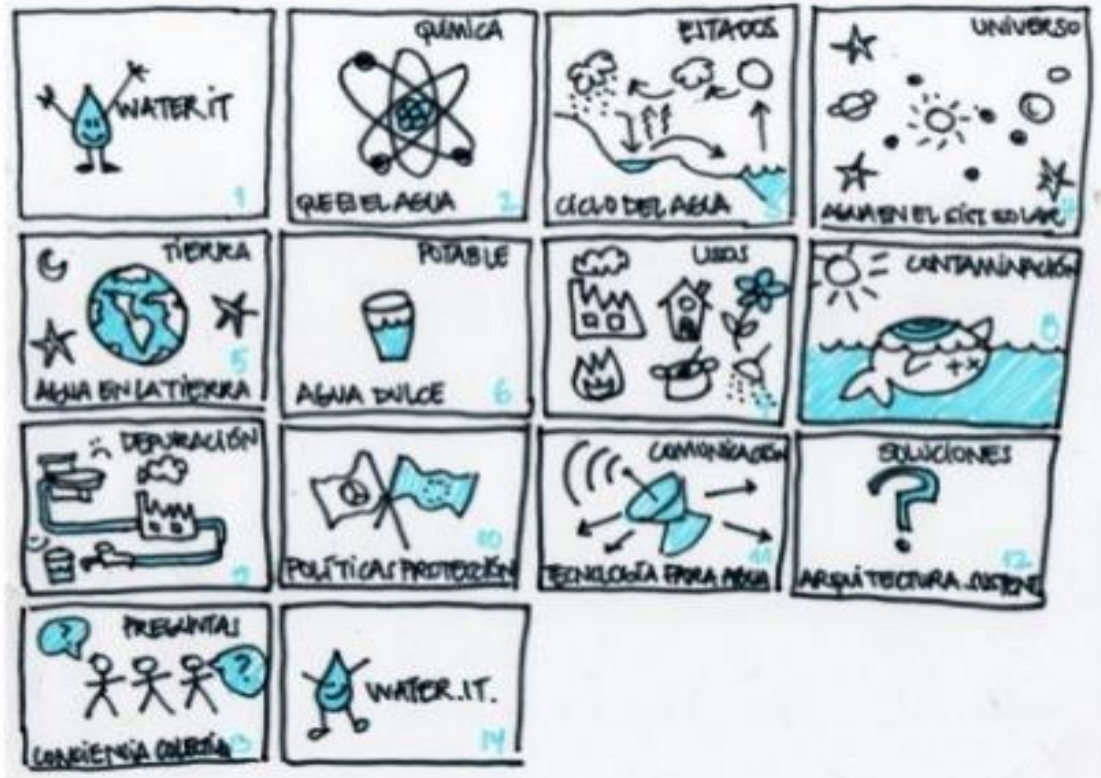 WATER.IT
1
QUÍMICA
QUE ES EL AGUA
2
ESTADOS
CICLO DEL AGUA
3
UNIVERSO
AGUA EN EL SIST. SOLAR
4
TIERRA
5
AGUA EN LA TIERRA
POTABLE
AGUA DULCE
6
USOS
7
CONTAMINACIÓN
8
DEPURACIÓN
9
10
POLÍTICAS PROTECCIÓN
COMUNICACIÓN
11
TECNOLOGÍA PARA AGUA
SOLUCIONES
?
12
ARQUITECTURA SOSTENI
?
PREGUNTAS
?
CONCIENCIA COLECTIVA
13
WATER.IT.
14